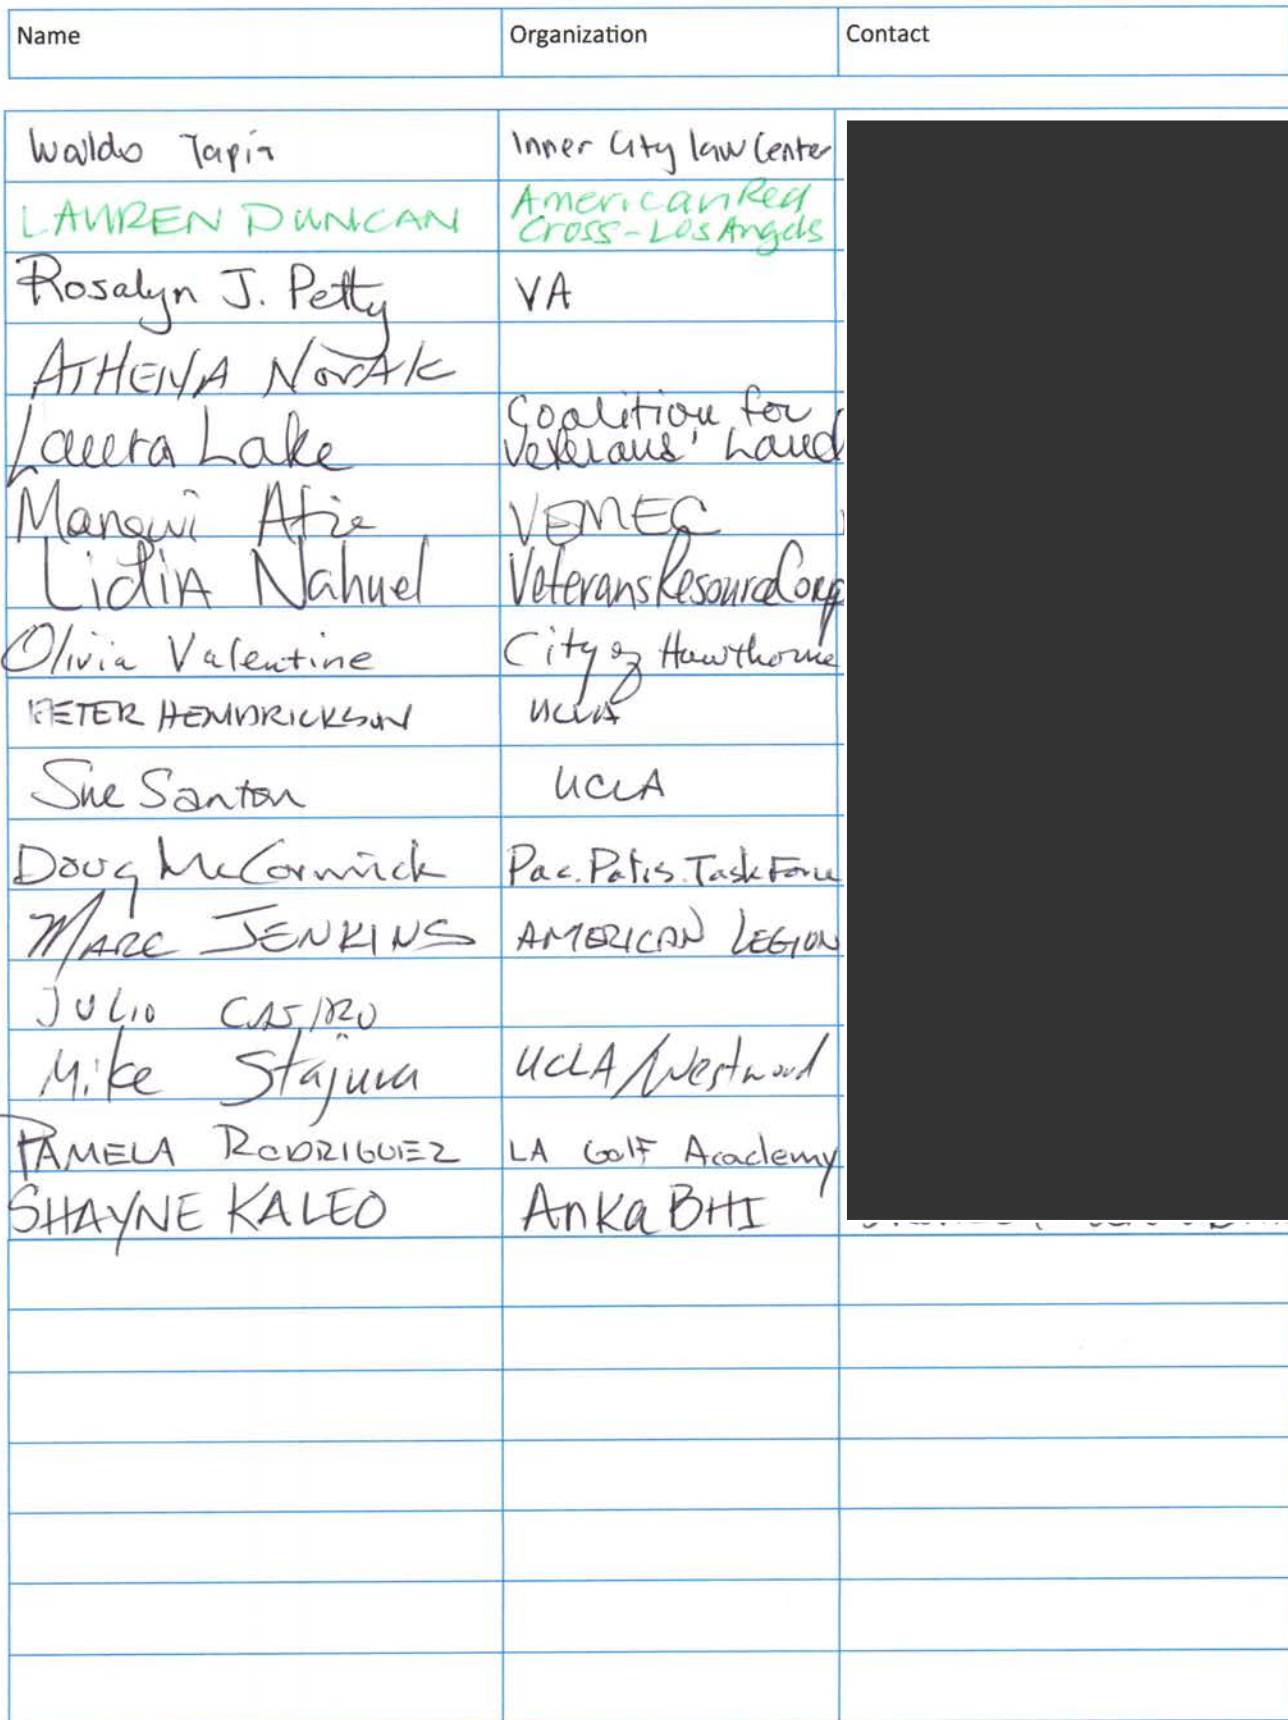 Name Organization Contact
Waldo Tapia Inner City law Center
LAUREN DUNCAN American Red
Cross - Los Angels
Rosalyn J. Petty VA
ATHENA NOVAK
Laura Lake Coalition for
Veterans' Land
VEMEC
Lidia Nahuel Veterans Resource Corp
Olivia Valentine City of Hawthorne
PETER HENDRICKSON UCLA
Sue Santon UCLA
Doug McCormick Pac. Palis. Task Force
MARC JENKINS AMERICAN LEGION
JULIO CASTRO
Mike Stajura UCLA/Westwood
PAMELA RODRIGUEZ LA Golf Academy
SHAYNE KALEO Anka BHI